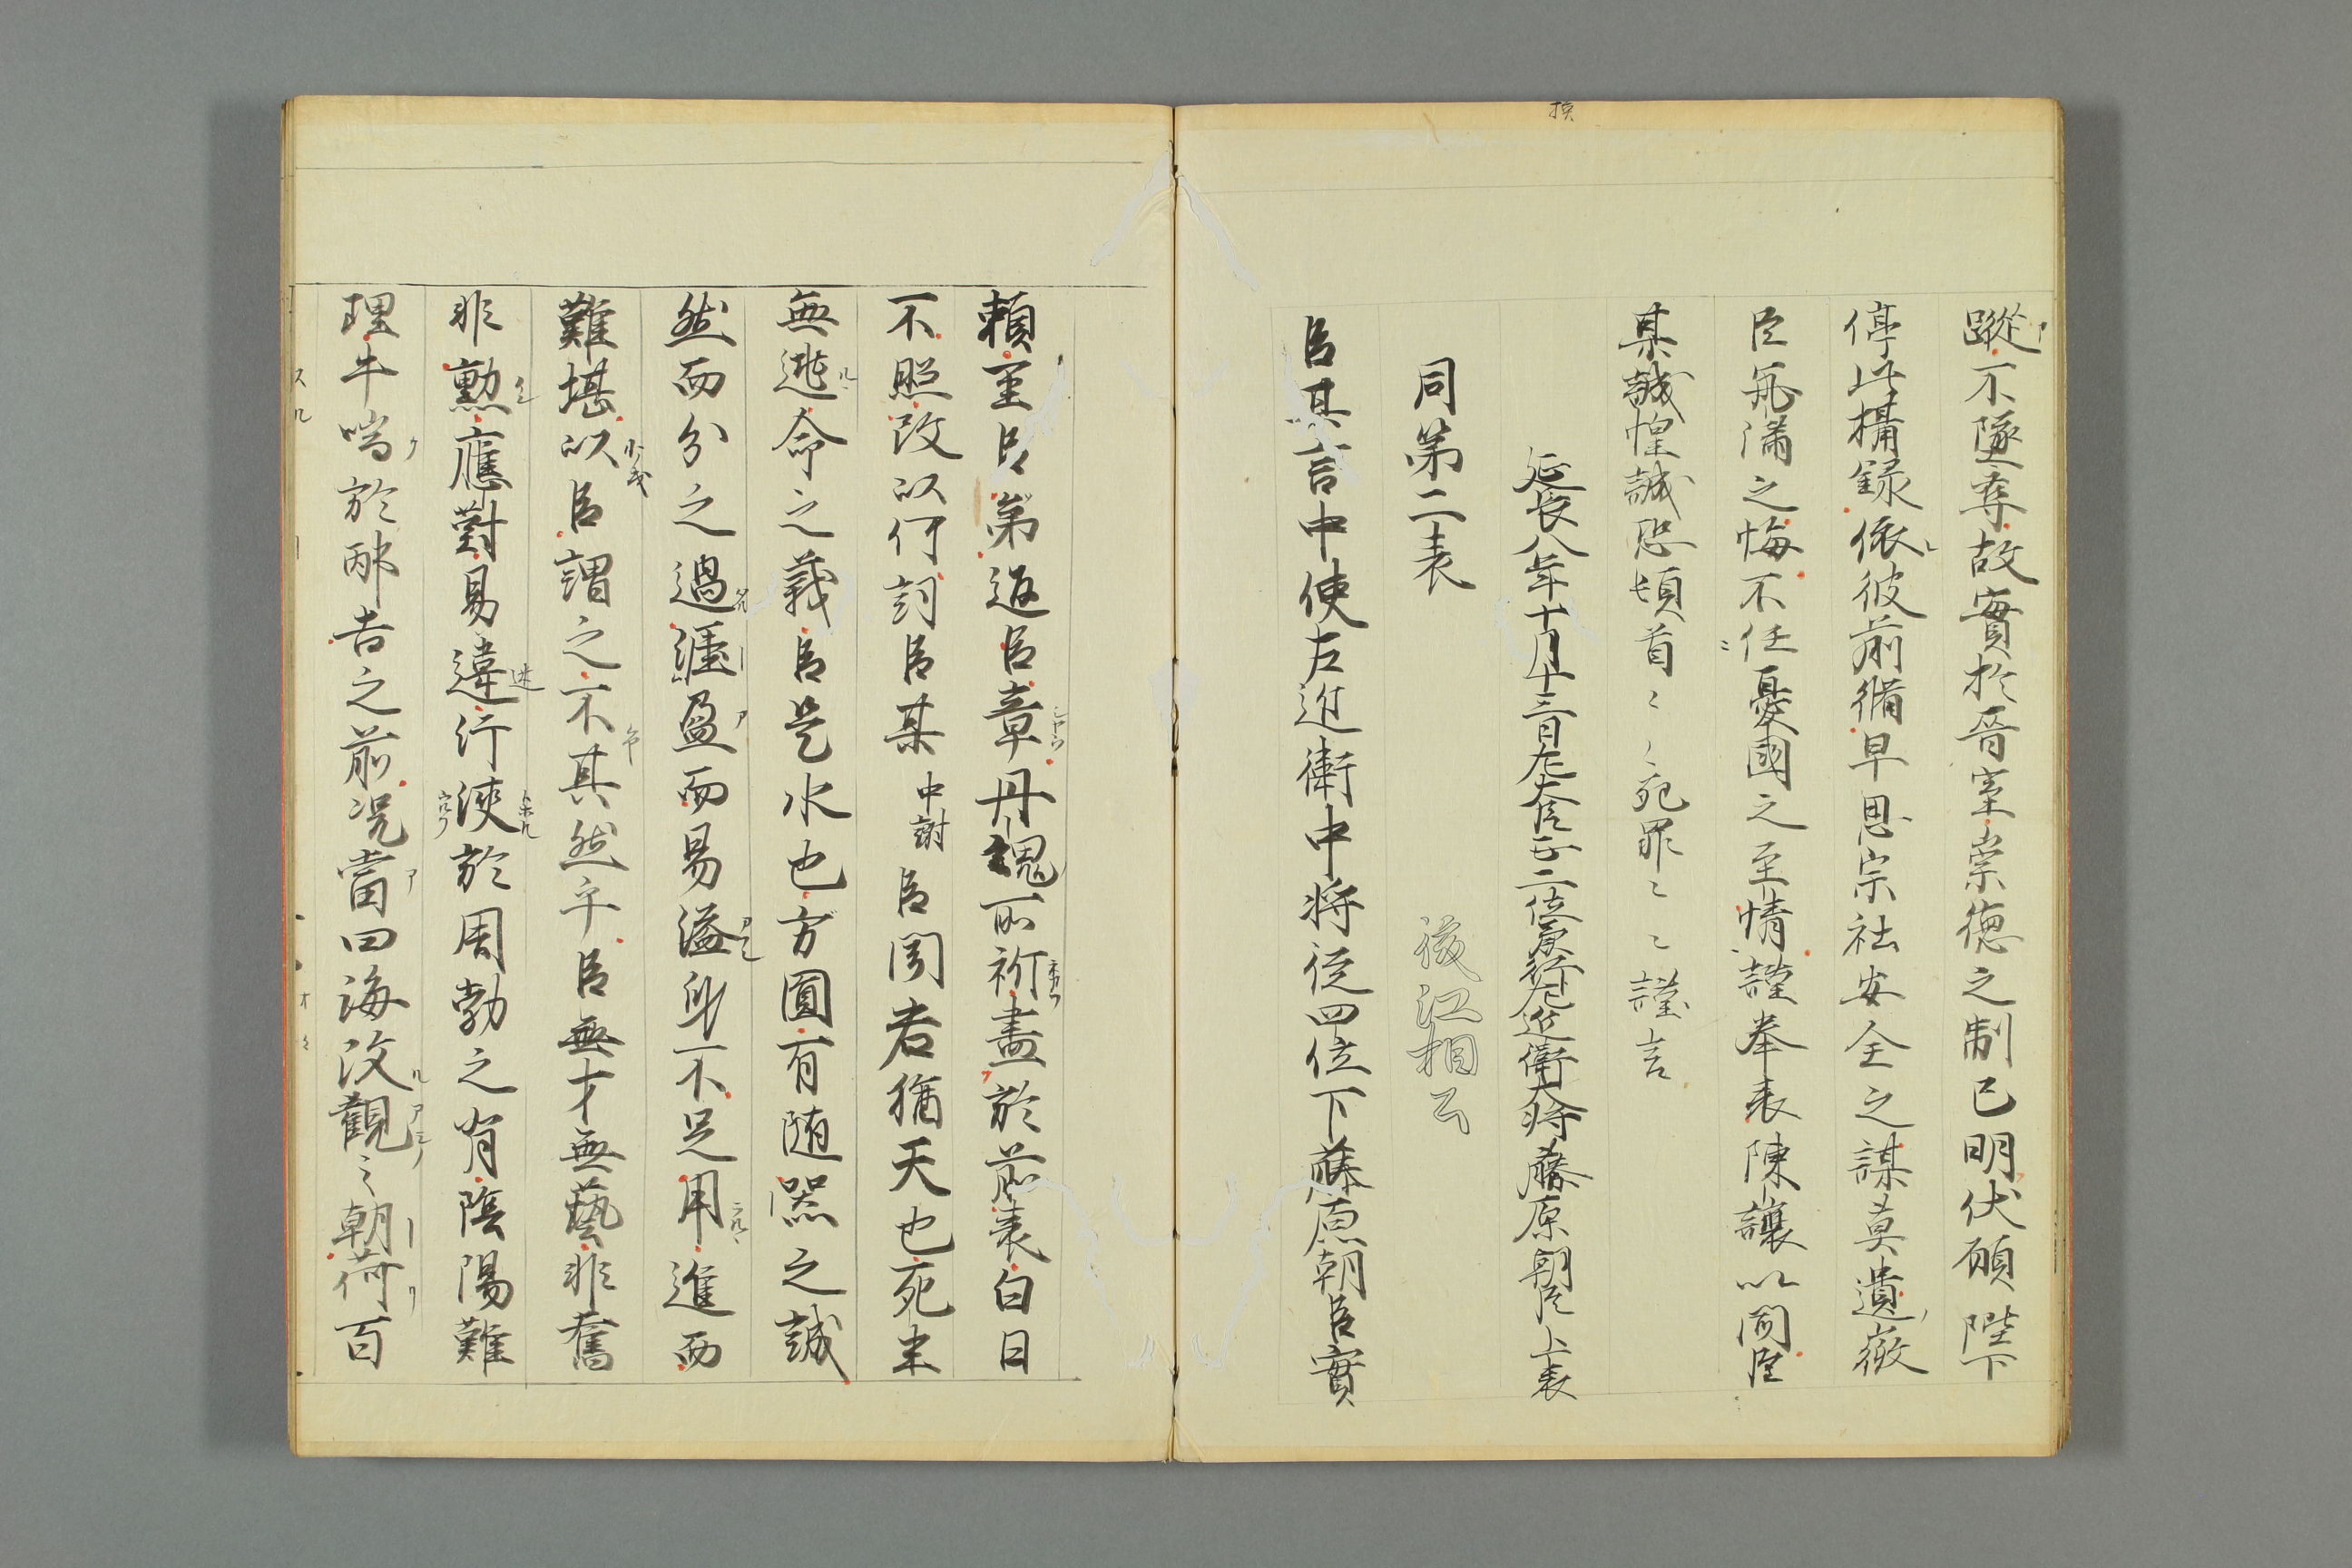 蹤不墜奪故實於晉室崇德之制已明伏願陛下
停此攝録依彼前脩早思宗社安全之謀莫遺嶔
臣甁滿之悔不任憂國之至情謹奉表陳讓以聞臣
某誠惶誠恐頓首〻〻死罪〻〻謹言
延長八年十月十三日左大臣正二位兼行左近衛大将藤原朝臣上表
同第二表
後江相公
臣某言中使左近衛中将従四位下藤原朝臣實
頼至臣第返臣章丹魂所祈盡於前表白日
不照改以何詞臣某中謝臣聞君猶天也死生
無逃命之義臣是水也方圓有随器之誠
然而分之過涯盈而易溢身不足用進而
難堪以臣謂之不其然乎臣無才無藝非舊
非勲應對易違行浹於周勃之背陰陽難
理牛喘於邴吉之前况當四海改觀之朝荷百